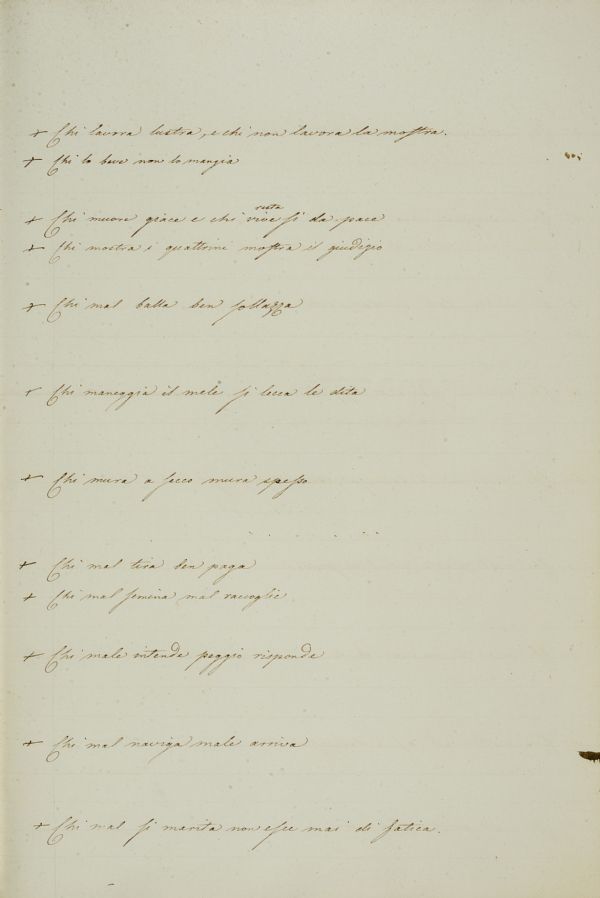 + Chi lavora lustra, e chi non lavora la mostra.
+ Chi lo beve non lo mangia
resta
+ Chi muore giace e chi vive si da pace
+ Chi mostra i quattrini mostra il giudizio
+ Chi mal balla ben sollazza
+ Chi maneggia il mele si lecca le dita
+ Chi mura a secco mura spesso
+ Chi mal tira ben paga
+ Chi mal semina mal raccoglie
+ Chi male intende peggio risponde
+ Chi mal naviga male arriva
+ Chi mal si marita non esce mai di fatica.